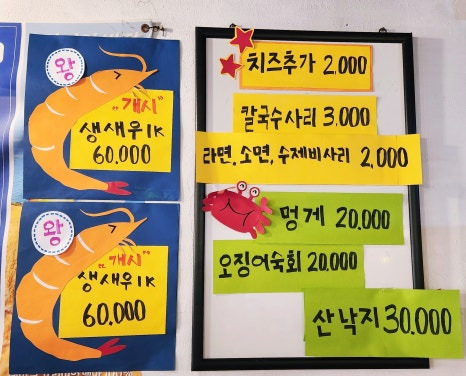 왕
"개시"
생새우1K
60.000
왕
"개시"
생새우1K
60.000
치즈추가 2.000
칼국수사리 3.000
라면, 소면, 수제비사리 2,000
멍게 20.000
오징어숙회 20.000
산낙지 30.000